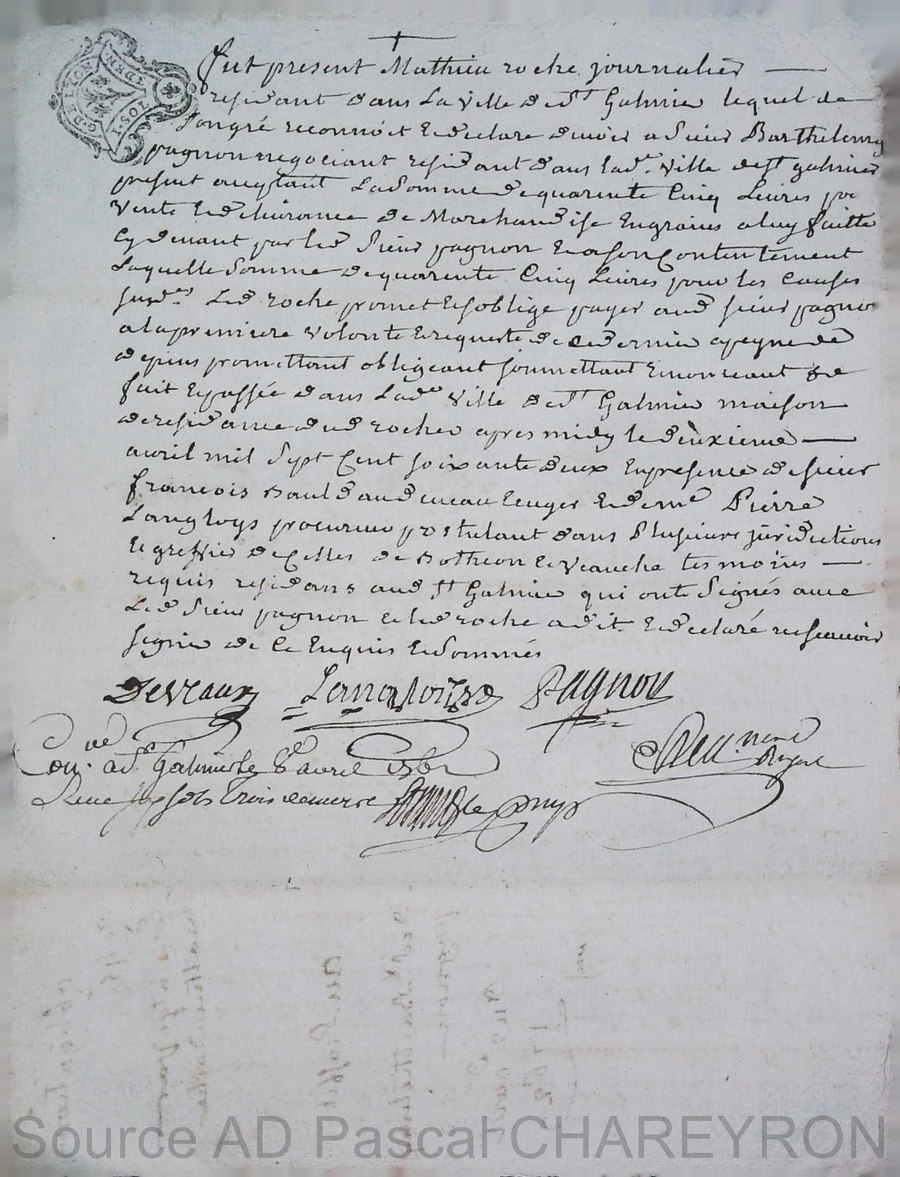 G. DE LYON
1. SOL
DEN.
fut present Mathieu roche journalier
residant dans La ville de St Galmier lequel de
son gré reconnoît et declare devoir a sieur Barthelemy
pagnon negociant residant dans lade ville de st galmier
present acceptant La somme de quarente Cinq Livres po
vente et delivrance de Marchandise En grains a luy faitte
Cy devant par led Sieur pagnon Et a son Contentement
Laquelle somme de quarente Cinq Livres pour les Causes
susdes Led roche promet et soblige payer aud sieur pagnon
a la premiere volonte et requeste de ce dernier a peyne de
depens promettant obligeant soumettant renonceant
fait et passée dans Lade ville de St Galmier maison
de residance dud rocher apres midy le deuxieme
avril mil sept Cent soixante deux En presence de sieur
francois et de me Pierre
Langloys procureur postulant dans Plusieurs juridictions
Et greffier de Celles de Botheon et Veauche tesmoins
requis residans aud St Galmier qui ont signés avec
Led Sieur pagnon et led roche a dit et declaré ne scavoir
signer de Ce Enquis et sommés
Deveaux Langloys Pagnon
nore
Royal
a St Galmier le 8 avril 1762
Receu six sols trois deniers
Source AD Pascal CHAREYRON